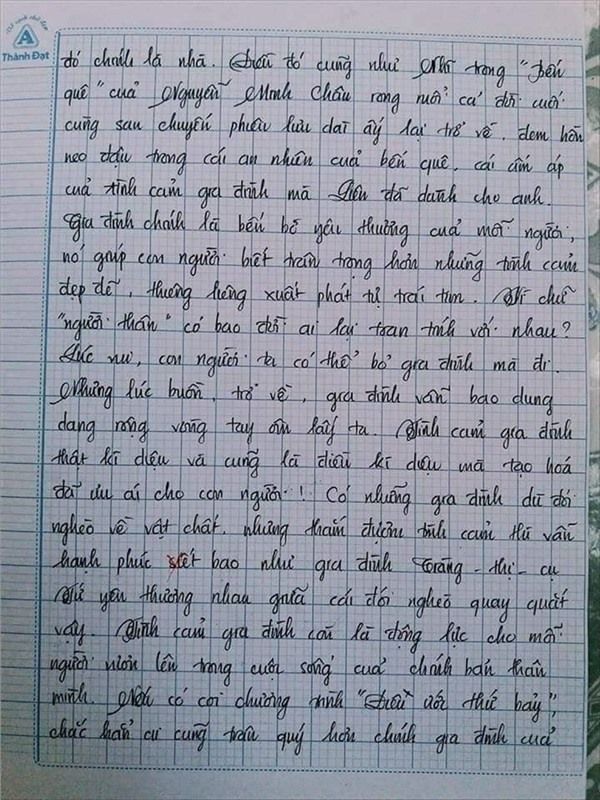 Vở sạch chữ đẹp
Thành Đạt
đó chính là nhà. Điều đó cũng như Nhĩ trong "Bến
quê" của Nguyễn Minh Châu rong ruổi cả đời cuối
cùng sau chuyến phiêu lưu dài ấy lại trở về, đem hồn
neo đậu trong cái an nhiên của bến quê, cái ấm áp
của tình cảm gia đình mà Liên đã dành cho anh.
Gia đình chính là bến bờ yêu thương của mỗi người,
nó giúp con người biết trân trọng hơn những tình cảm
đẹp đẽ, thương liêng xuất phát từ trái tim. Vì chữ
"người thân" có bao đời ai lại toan tính với nhau?
Lúc vui, con người ta có thể bỏ gia đình mà đi.
Nhưng lúc buồn, trở về, gia đình vẫn bao dung
dang rộng vòng tay ôm lấy ta. Tình cảm gia đình
thật kì diệu và cũng là điều kì diệu mà tạo hoá
đã ưu ái cho con người! Có những gia đình dù đói
nghèo về vật chất, nhưng thắm đượm tình cảm thì vẫn
hạnh phúc biết bao như gia đình Tràng - thị - cụ
Tứ yêu thương nhau giữa cái đói nghèo quay quắt
vậy. Tình cảm gia đình còn là động lực cho mỗi
người vươn lên trong cuộc sống của chính bản thân
mình. Nếu có coi chương trình "Điều ước thứ bảy",
chắc hẳn ai cũng trân quý hơn chính gia đình của